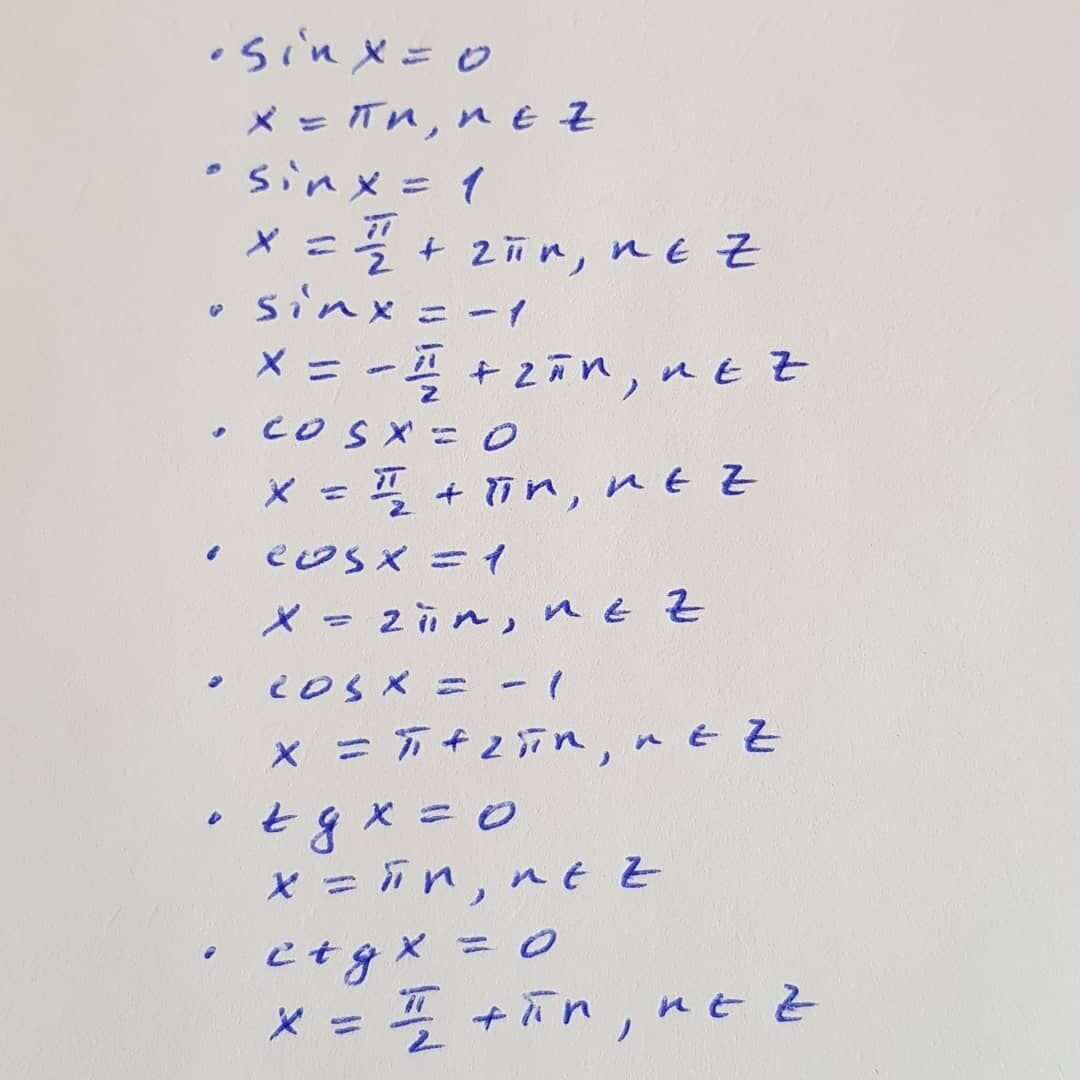 • sin x = 0
x = πn, n ∈ Z
• sin x = 1
x = π/2 + 2πn, n ∈ Z
• sin x = -1
x = -π/2 + 2πn, n ∈ Z
• cos x = 0
x = π/2 + πn, n ∈ Z
• cos x = 1
x = 2πn, n ∈ Z
• cos x = -1
x = π + 2πn, n ∈ Z
• tg x = 0
x = πn, n ∈ Z
• ctg x = 0
x = π/2 + πn, n ∈ Z